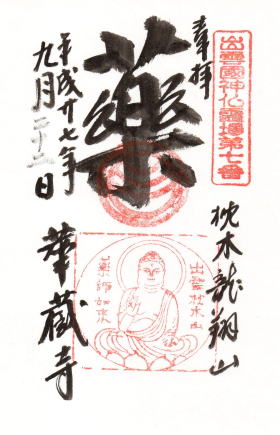 出雲國神仏霊場第七番
奉拝
枕木龍翔山
薬
出雲枕木山
薬師如来
平成廿七年
九月二十二日
華蔵寺